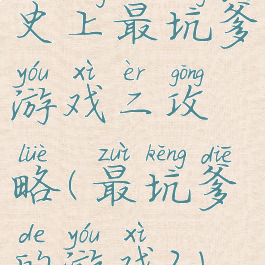 史上最坑爹
yóu xì èr gōng
游戏二攻
lüè zuì kēng diē
略(最坑爹
de yóu xì
的游戏2)